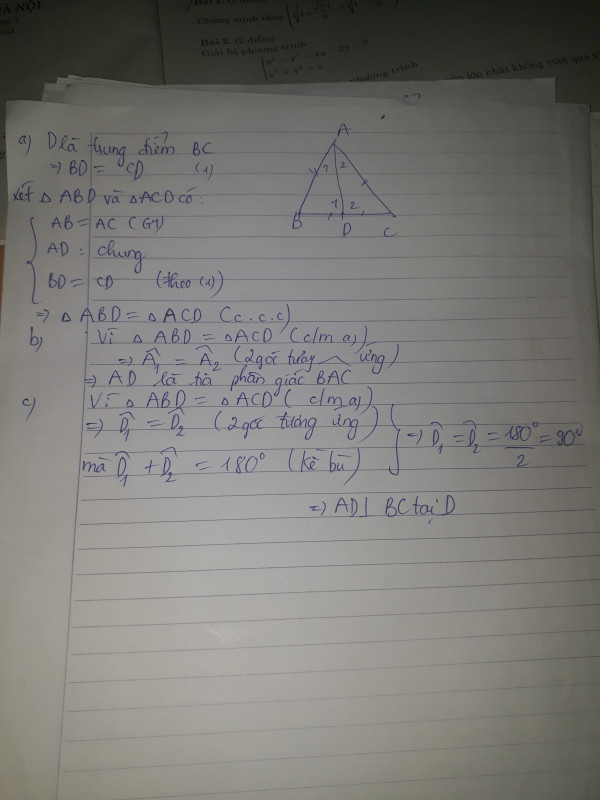 À NỘI
Bài 2. (2 điểm)
Chứng minh rằng
Giải hệ phương trình
phương trình
lớn nhất không vượt quá
a) D là trung điểm BC
=> BD = CD (1)
Xét △ ABD và △ACD có:
AB = AC (GT)
AD : chung
BD = CD (theo (1))
=> △ ABD = △ ACD (c.c.c)
A
1 2
1 2
B D C
b) Vì △ ABD = △ACD (c/m a))
=> Â1 = Â2 (2 góc tương ứng)
=> AD là tia phân giác BAC
c) Vì △ ABD = △ACD ( c/m a))
=> D̂1 = D̂2 (2 góc tương ứng)
mà D̂1 + D̂2 = 180° (kề bù)
=> D̂1 = D̂2 = 180°/2 = 90°
=> AD⊥ BC tại D